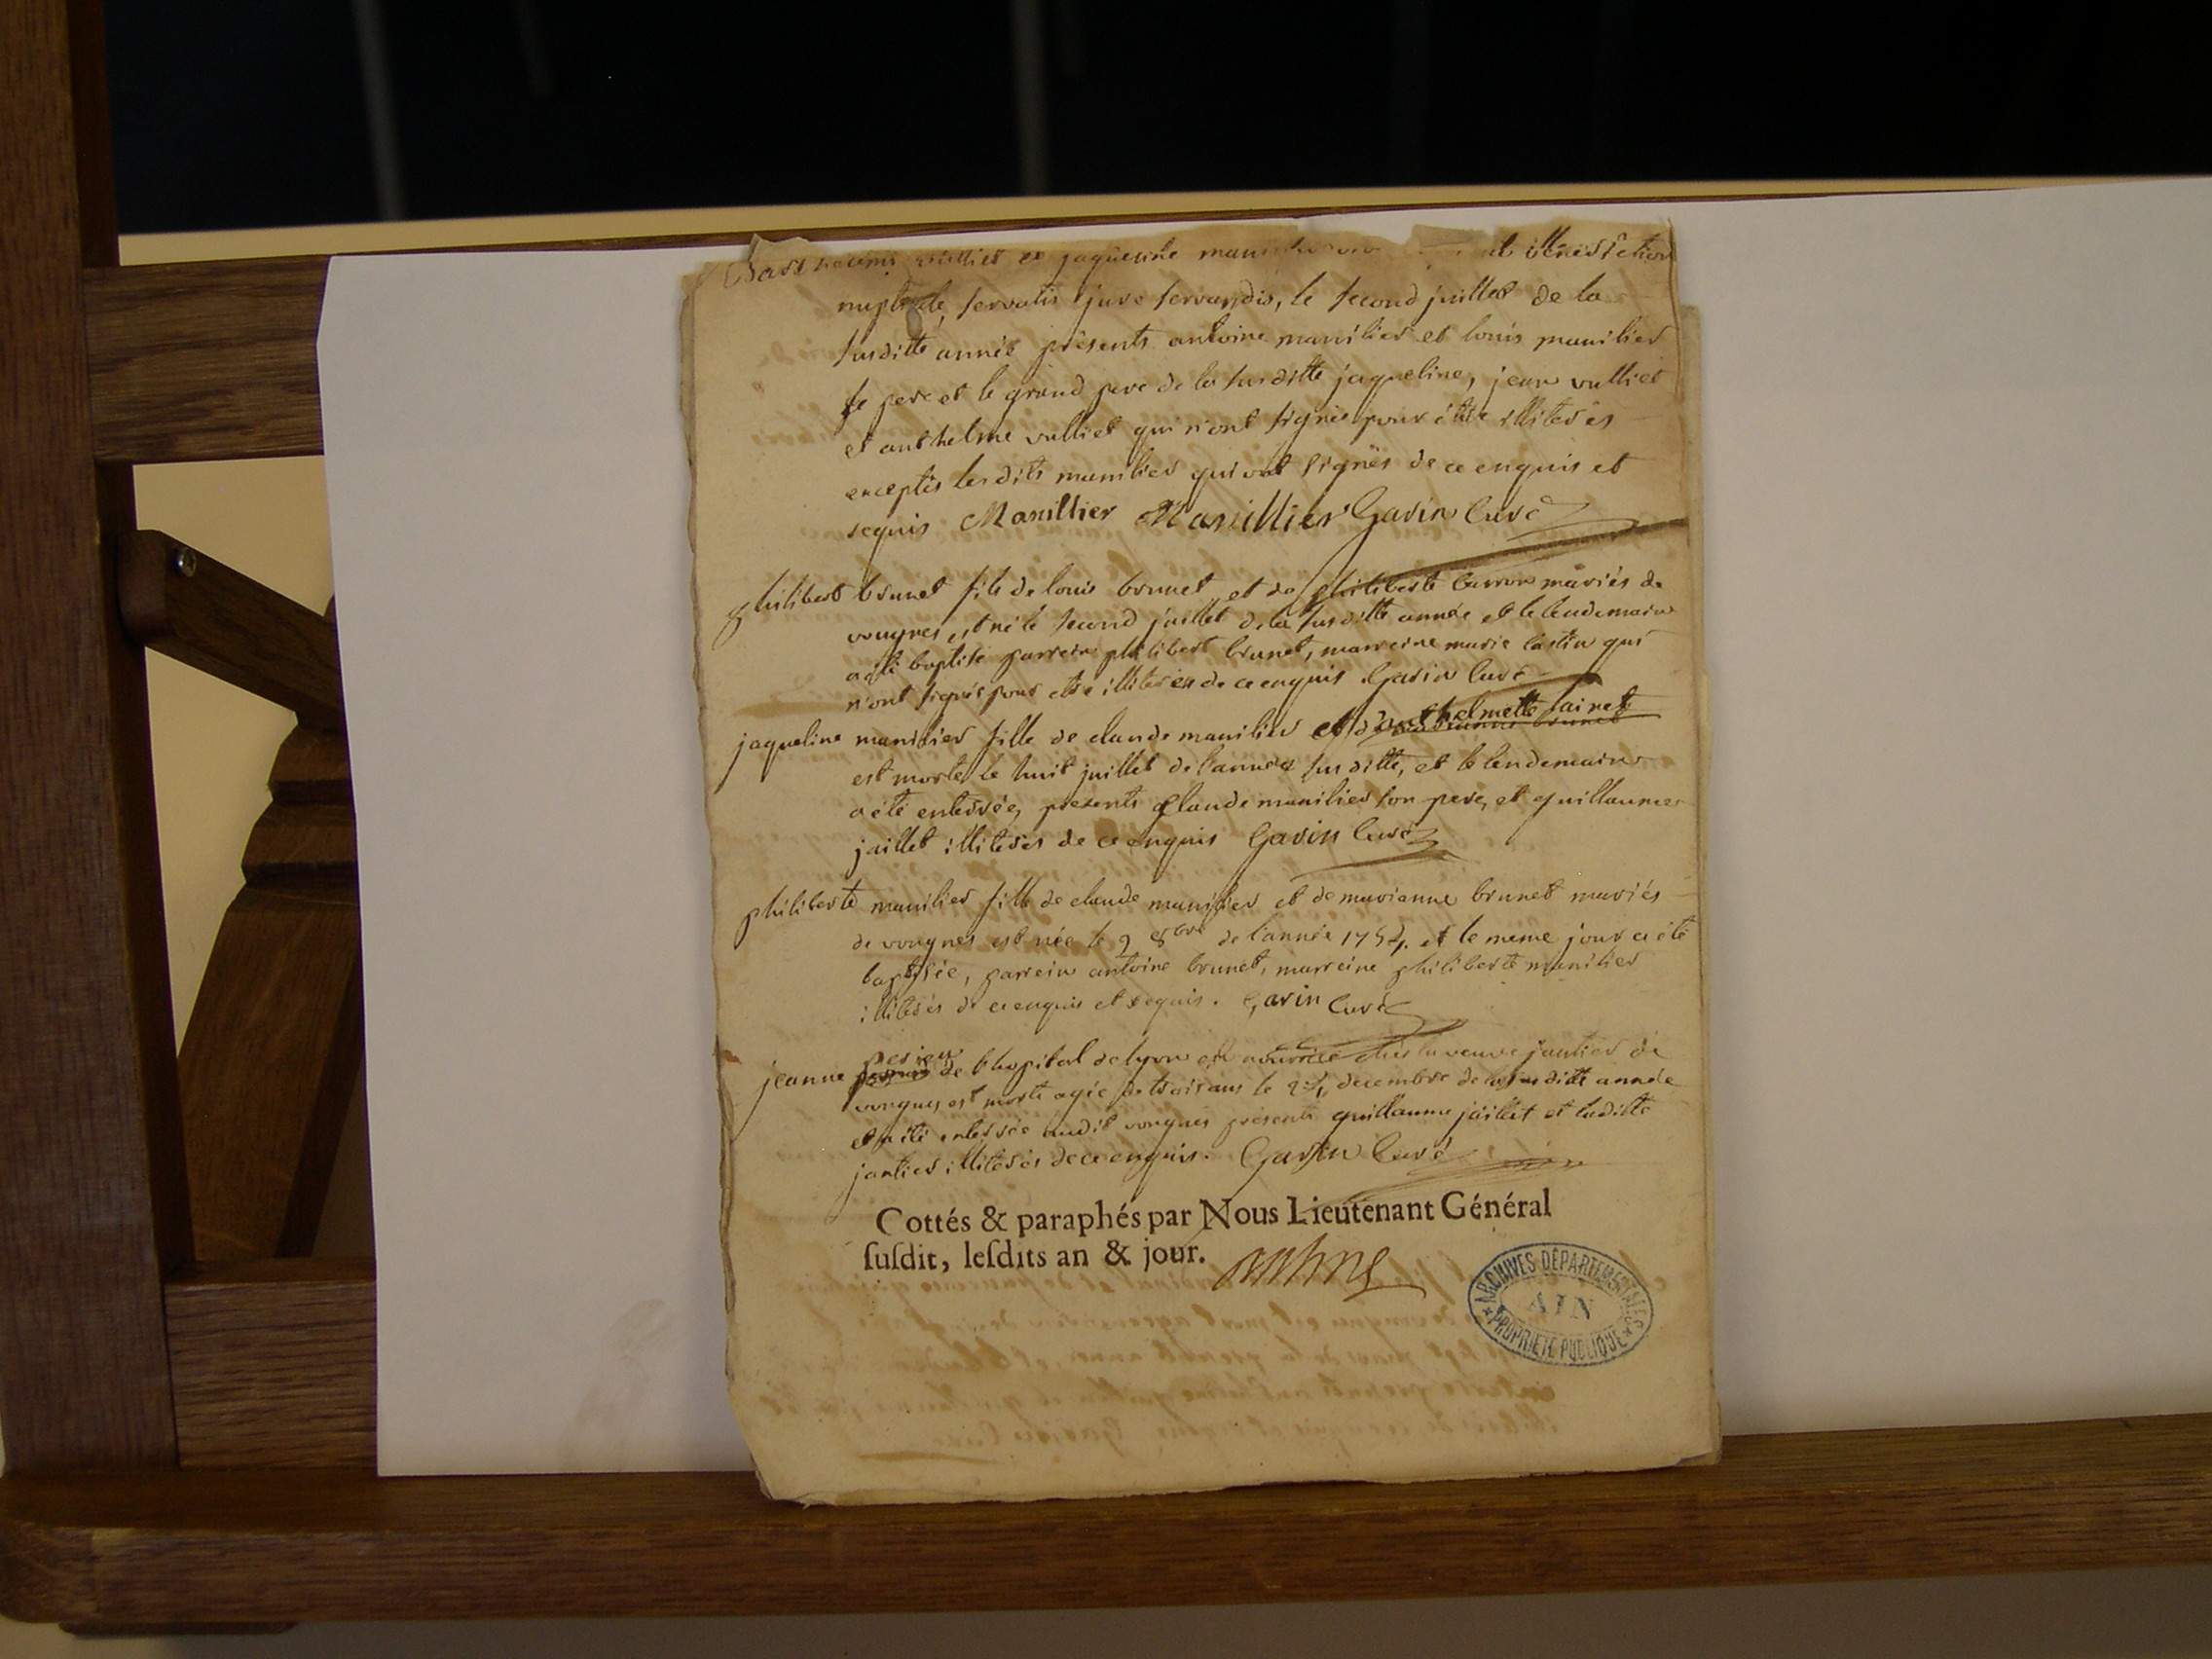 et jaqueline benediction
nuptiale, servatis jure servandis, le second juillet de la
susditte année présents antoine manilier et louis manilier
le pere et le grand pere de la susditte jaqueline, jean vulliet
et anthelme vulliet qui n'ont signés pour être illiterés
exceptés lesdits manilier qui ont signés de ce enquis et
requis Manillier Manillier Gavin Curé
philibert brunet fils de louis brunet et de philiberte mariés de
vongnes est né le second juillet de la susditte année et le lendemain
a été baptisé parrein philibert brunet, marreine marie qui
n'ont signés pour etre illiterés de ce enquis Gavin Curé
jaqueline manilier fille de claude manilier et d'anthelmette
est morte le huit juillet de l'année susditte, et le lendemain
a été enterrée, presents claude manilier son pere, et guillaume
jaillet illiterés de ce enquis Gavin Curé
philiberte manilier fille de claude manilier et de marianne brunet mariés
de vongnes est née le 9 8bre de l'année 1754. et le meme jour a été
baptisée, parrein antoine brunet, marreine philiberte manilier
illiterés de ce enquis et requis. Gavin Curé
jeanne de l'hopital de lyon en nourrice chés la veuve jantier de
vongnes est morte agée de trois ans le decembre de la susditte année
et a été enterrée audit vongnes présents guillaume jaillet et laditte
jantier illiterés de ce enquis. Gavin Curé
Cottés & paraphés par Nous Lieutenant Général
ſuſdit, leſdits an & jour.
ARCHIVES DÉPARTEMENTALES
AIN
PROPRIÉTÉ PUBLIQUE